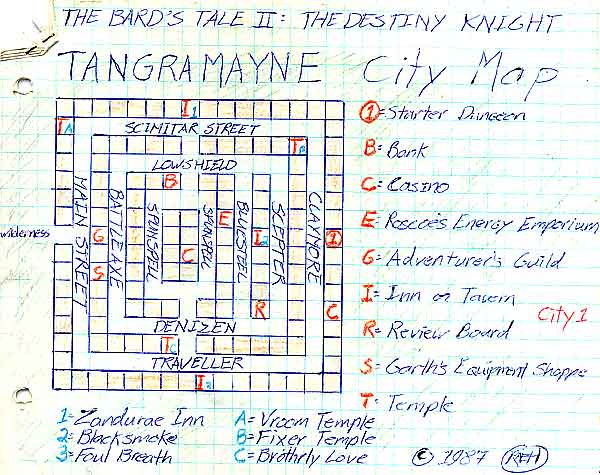 THE BARD'S TALE II: THE DESTINY KNIGHT
TANGRAMAYNE City Map
I1
TA
SCIMITAR STREET
TB
LOWSHIELD
B
MAIN STREET
BATTLEAXE
SPINSPELL
SPINSPELL
BLUESTEEL
SCEPTER
CLAYMORE
E
wilderness
G
I2
1
C
S
R
C
DENIZEN
TC
TRAVELLER
I3
1 = Starter Dungeon
B = Bank
C = Casino
E = Roscoe's Energy Emporium
G = Adventurer's Guild
I = Inn or Tavern
City 1
R = Review Board
S = Garth's Equipment Shoppe
T = Temple
1 = Zandurae Inn
2 = Blacksmoke
3 = Foul Breath
A = Vroom Temple
B = Fixer Temple
C = Brothrly Love
© 1987